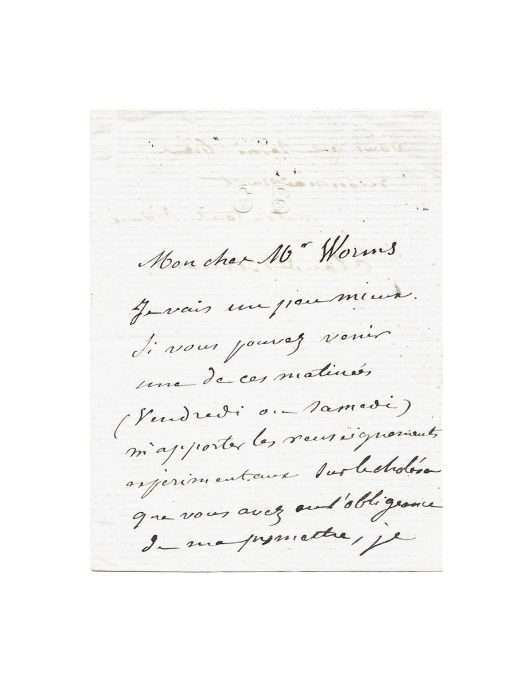 Mon cher Mr Worms
Je vais un peu mieux.
Si vous pouvez venir
une de ces matinées
(Vendredi ou Samedi)
m'apporter les renseignements
expérimentaux sur le choléra
que vous avez eu l'obligeance
de me promettre, je